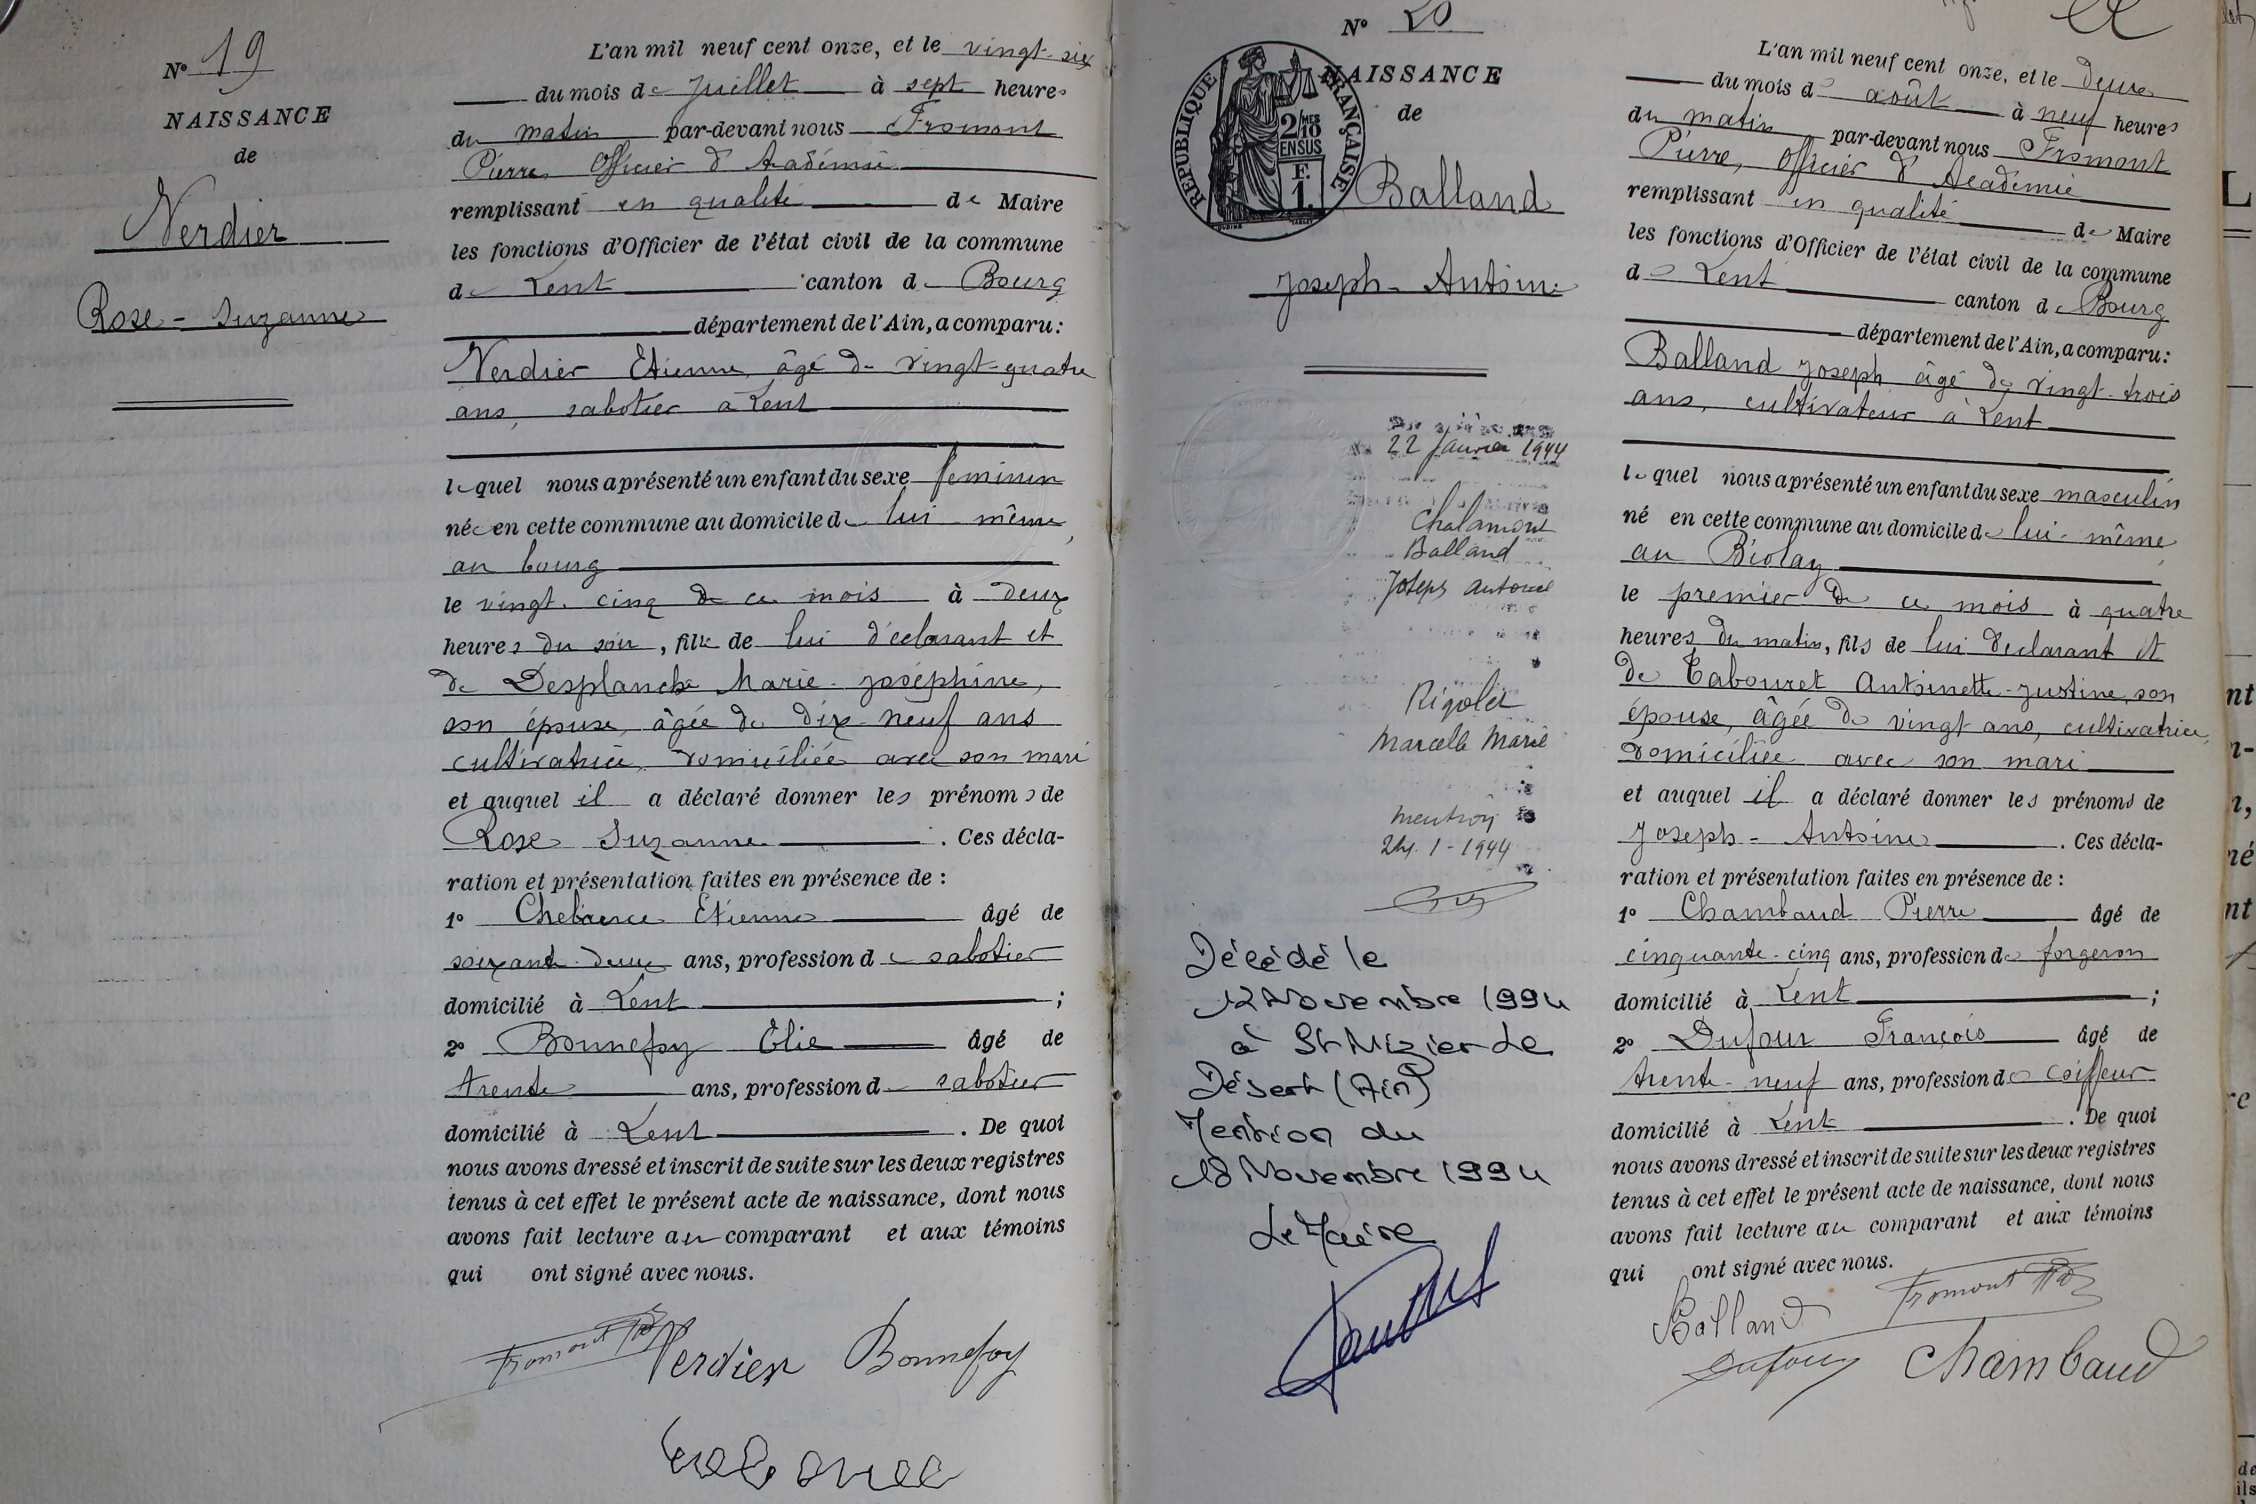 N° 19
NAISSANCE
de
Verdier
Rose - Suzanne
L'an mil neuf cent onze, et le vingt-six
du mois de Juillet à sept heures
du matin par-devant nous Fromont
Pierre, Officier d'Académie
remplissant en qualité de Maire
les fonctions d'Officier de l'état civil de la commune
de Lent canton de Bourg
département de l'Ain, a comparu :
Verdier Etienne, âgé de vingt-quatre
ans, sabotier à Lent
lequel nous a présenté un enfant du sexe féminin
née en cette commune au domicile de lui-même,
au bourg
le vingt-cinq de ce mois à deux
heures du soir, fille de lui déclarant et
de Desplanche Marie-Joséphine,
son épouse, âgée de dix-neuf ans
cultivatrice, domiciliée avec son mari
et auquel il a déclaré donner les prénoms de
Rose Suzanne. Ces décla-
ration et présentation faites en présence de :
1° Etienne âgé de
soixante-deux ans, profession de sabotier
domicilié à Lent ;
2° Bonnefoy Elie âgé de
trente ans, profession de sabotier
domicilié à Lent. De quoi
nous avons dressé et inscrit de suite sur les deux registres
tenus à cet effet le présent acte de naissance, dont nous
avons fait lecture au comparant et aux témoins
qui ont signé avec nous.
Fromont Verdier Bonnefoy
N° 20
NAISSANCE
de
REPUBLIQUE FRANÇAISE
2/10 MES
EN SUS
F.
1.
Balland
Joseph-Antoine
22 Janvier 1944
Chalamont
Balland
Joseph Antoine
Rigolet
Marcelle Marie
mention
24.1-1944
Décédé le
12 Novembre 1994
à St Nizier le
Désert (Ain)
Mention du
18 Novembre 1994
Le Maire
L'an mil neuf cent onze, et le deux
du mois d'août à neuf heures
du matin par-devant nous Fromont
Pierre, Officier d'Académie
remplissant en qualité de Maire
les fonctions d'Officier de l'état civil de la commune
de Lent canton de Bourg
département de l'Ain, a comparu :
Balland Joseph âgé de vingt-trois
ans, cultivateur à Lent
lequel nous a présenté un enfant du sexe masculin
né en cette commune au domicile de lui-même,
au Biolay
le premier de ce mois à quatre
heures du matin, fils de lui déclarant et
de Tabouret Antoinette-Justine, son
épouse, âgée de vingt ans, cultivatrice,
domiciliée avec son mari
et auquel il a déclaré donner les prénoms de
Joseph-Antoine. Ces décla-
ration et présentation faites en présence de :
1° Chambaud Pierre âgé de
cinquante-cinq ans, profession de forgeron
domicilié à Lent ;
2° Dufour François âgé de
trente-neuf ans, profession de coiffeur
domicilié à Lent. De quoi
nous avons dressé et inscrit de suite sur les deux registres
tenus à cet effet le présent acte de naissance, dont nous
avons fait lecture au comparant et aux témoins
qui ont signé avec nous.
Balland Fromont
Dufour Chambaud